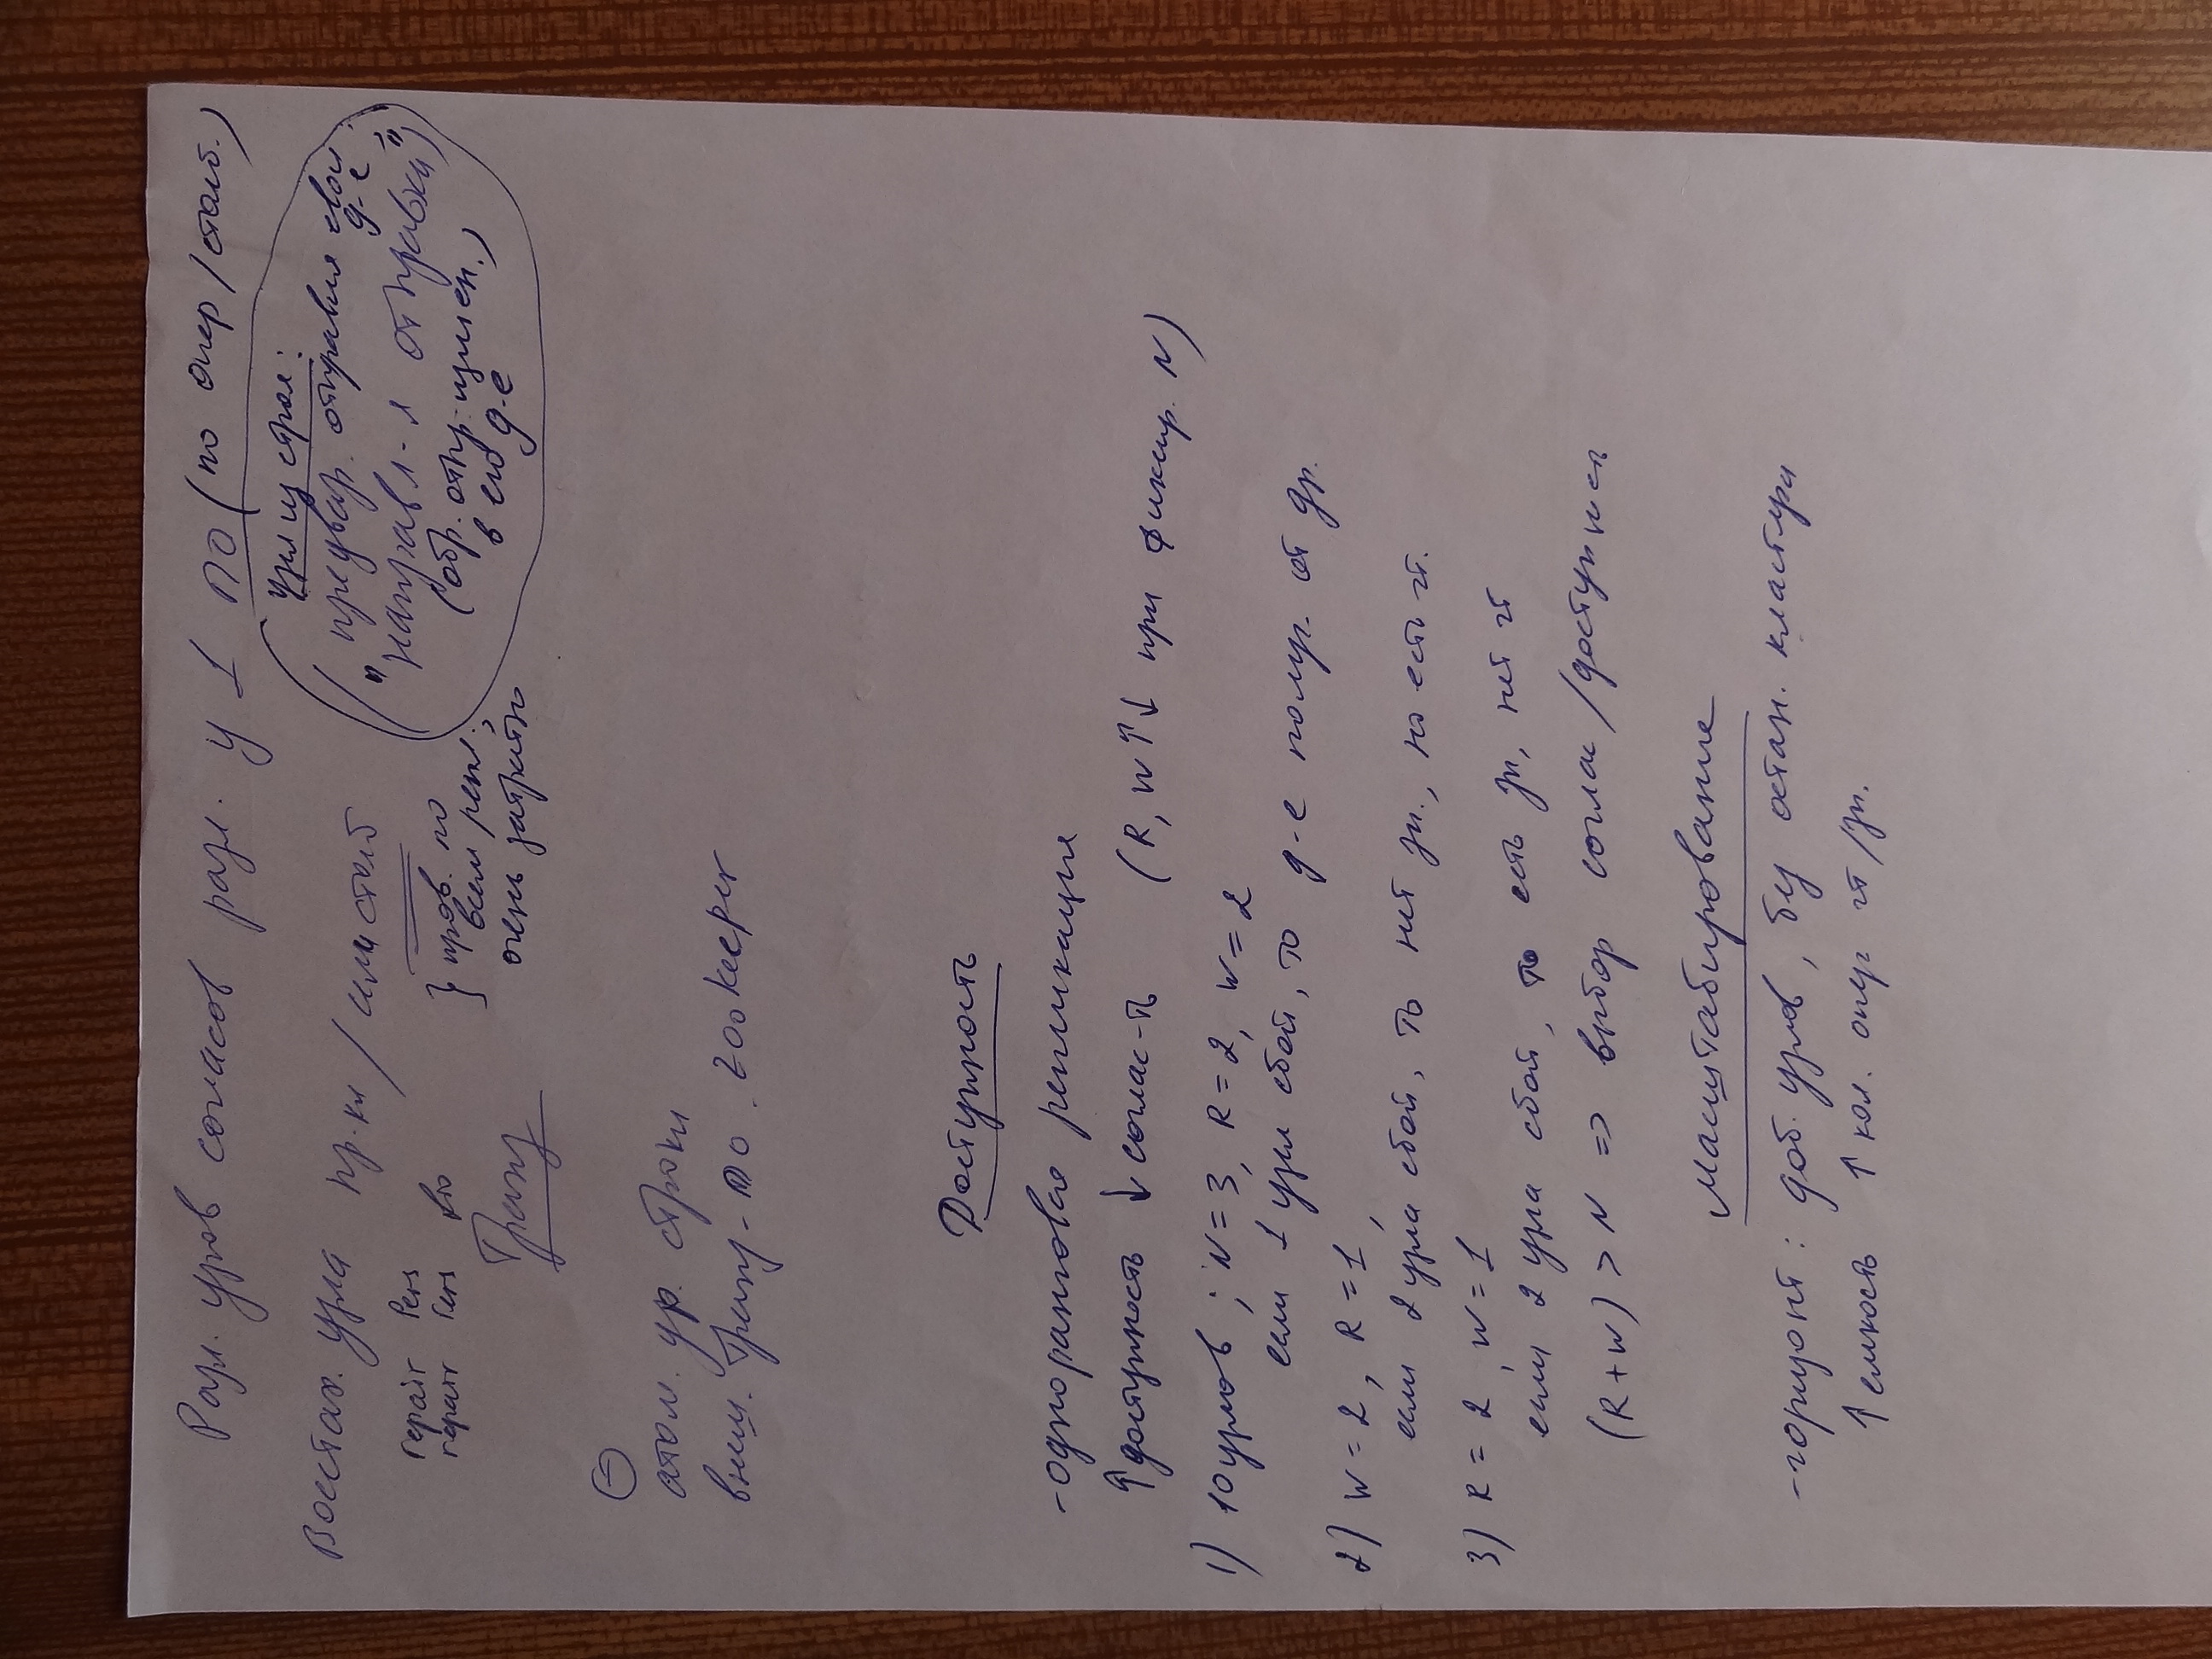 Разл. уров согласов разл. у 1 ПО (по опер/столб.)
Восстан. узла пр.кл / сем столб
repair Pers
repair Pers fio
} пров. по
всем репл.,
очень затратно
узл из строя:
предвар. отправл свои
д-е,
"направл-я отправки")
(обр. отпр. измен.)
в его д-е
Транз
⊖
атом. ур. строки
внеш. Транз-ПО ZooKeeper
Доступность
-одноранговая репликация
↑доступность ↓соглас-ть (R, W↑↓ при фиксир. N)
1) 10 узлов ; N=3, R=2, W=2
если 1 узел сбой, то д-е получ. от др.
2) W=2, R=1,
если 2 узла сбой, то нет зп., но есть чт.
3) R=2, W=1
если 2 узла сбой, то есть зп, нет чт
(R+W) > N => выбор соглас /доступность
Масштабирование
-горизонт: доб. узлов, без остан. кластера
↑ емкость ↑ кол. опер чт/зп.